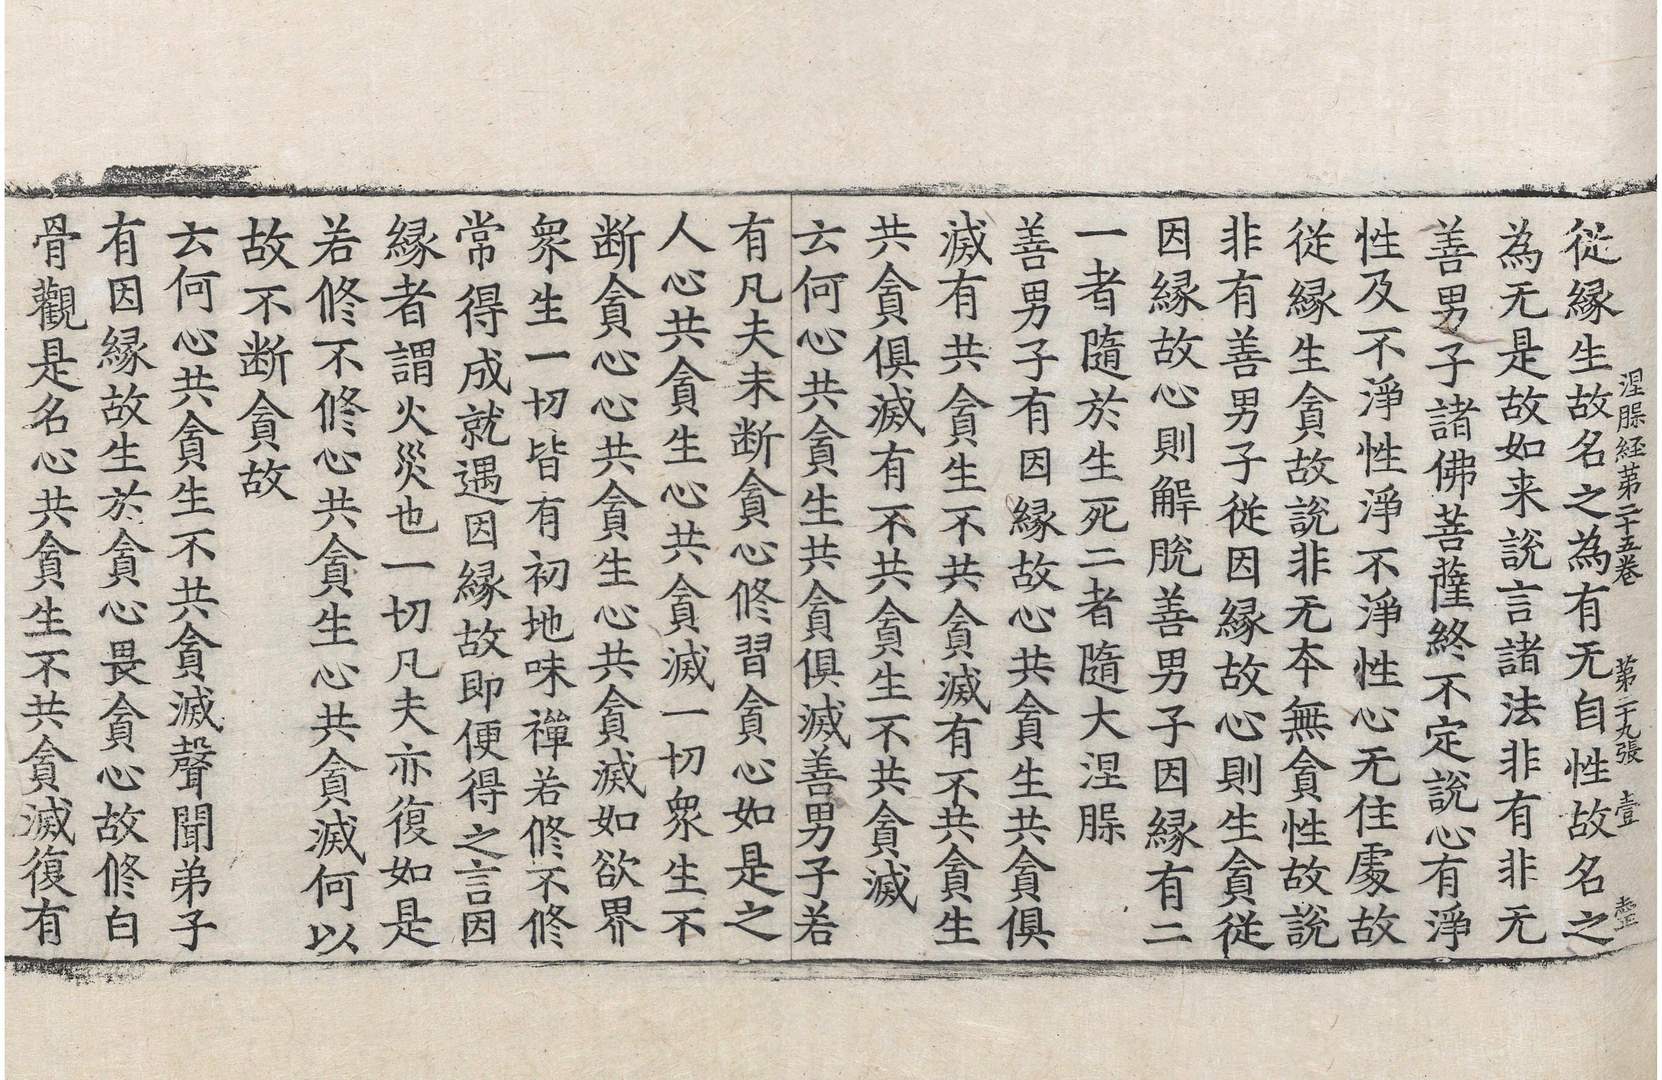 涅槃経苐二十五巻　苐二十九張　壹
從縁生故名之為有无自性故名之
為无是故如来說言諸法非有非无
善男子諸佛菩薩終不定說心有淨
性及不淨性淨不淨性心无住處故
從縁生貪故說非无夲無貪性故說
非有善男子從因縁故心則生貪從
因縁故心則解脫善男子因縁有二
一者隨於生死二者隨大涅槃
善男子有因縁故心共貪生共貪俱
滅有共貪生不共貪滅有不共貪生
共貪俱滅有不共貪生不共貪滅
云何心共貪生共貪俱滅善男子若
有凡夫未断貪心修習貪心如是之
人心共貪生心共貪滅一切衆生不
断貪心心共貪生心共貪滅如欲界
衆生一切皆有初地味禪若修不修
常得成就遇因縁故即便得之言因
縁者謂火災也一切凡夫亦復如是
若修不修心共貪生心共貪滅何以
故不断貪故
云何心共貪生不共貪滅聲聞弟子
有因縁故生於貪心畏貪心故修白
骨觀是名心共貪生不共貪滅復有